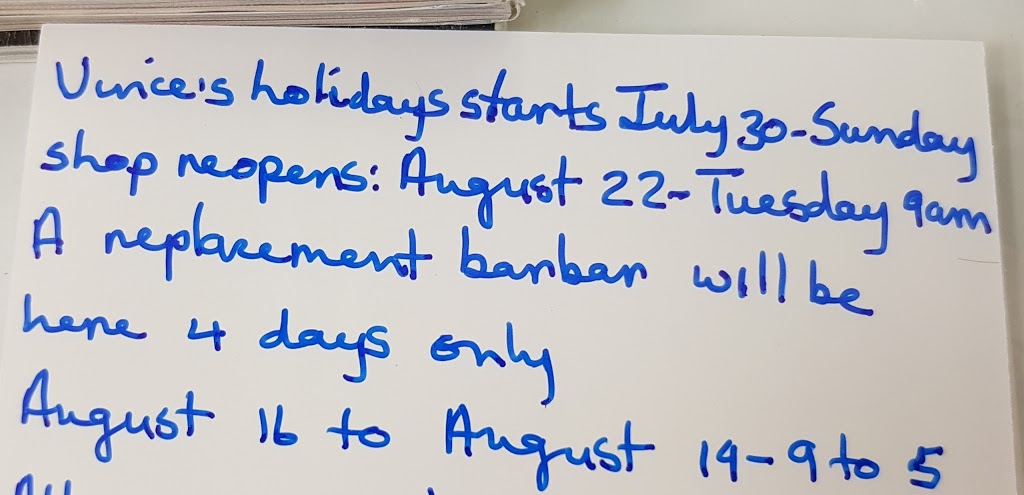 Vince's holidays starts July 30-Sunday
shop reopens: August 22-Tuesday 9am
A replacement barber will be
here 4 days only
August 16 to August 19-9 to 5